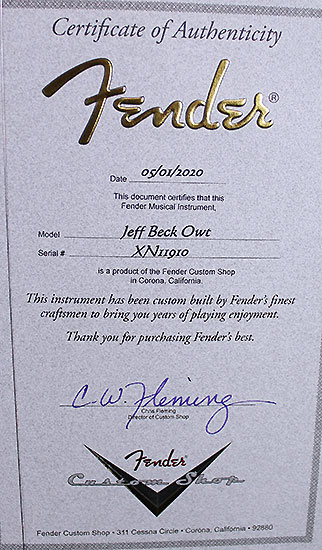 Certificate of Authenticity
Fender®
Date 05/01/2020
This document certifies that this
Fender Musical Instrument,
Model Jeff Beck Owt
Serial # XN11910
is a product of the Fender Custom Shop
in Corona, California.
This instrument has been custom built by Fender's finest
craftsmen to bring you years of playing enjoyment.
Thank you for purchasing Fender's best.
C.W. Fleming
Chris Fleming
Director of Custom Shop
Fender
Custom Shop
Fender Custom Shop • 311 Cessna Circle • Corona, California • 92880